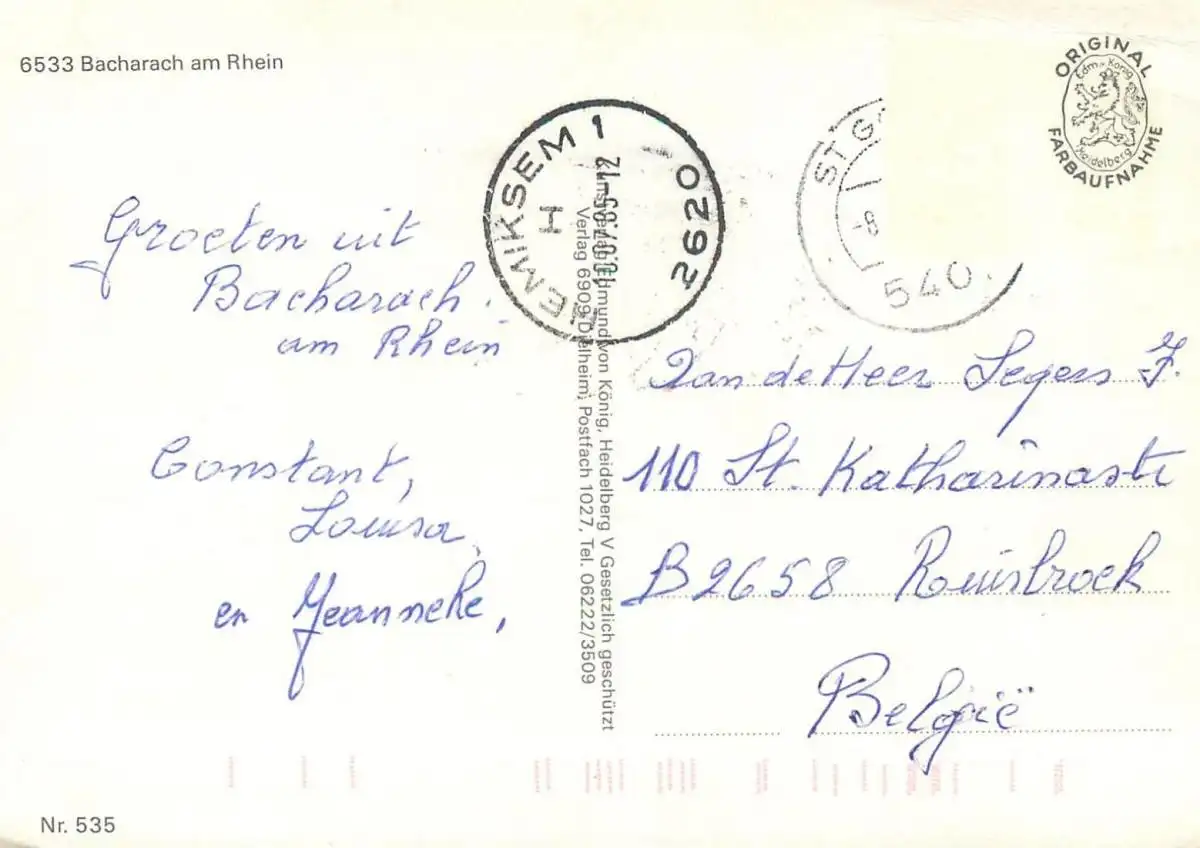 6533 Bacharach am Rhein
ORIGINAL
Edm. v. König
Heidelberg
FARBAUFNAHME
HEMIKSEM 1
H
2620
10.07.85-12
ST G
-8.
540
Groeten uit
Bacharach.
am Rhein
Constant,
Louisa,
en Jeanneke,
Aan de Heer Segers J.
110 St. Katharinastr
B2658 Ruisbroek
België
Kunstverlag Edmund von König, Heidelberg V Gesetzlich geschützt
Verlag 6909 Dielheim, Postfach 1027, Tel. 06222/3509
Nr. 535